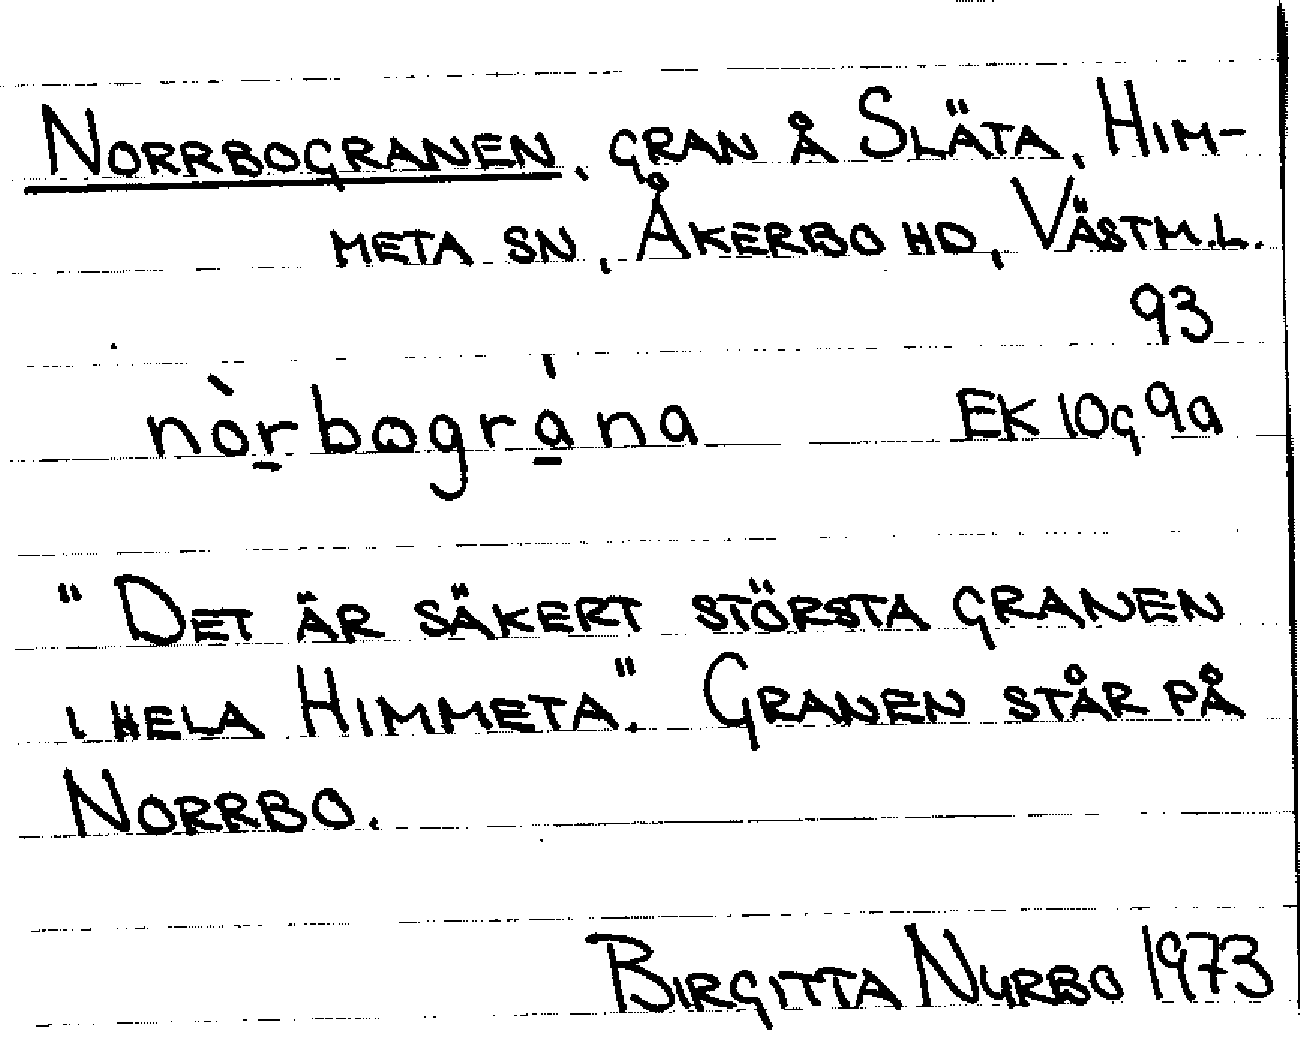 NORRBOGRANEN, GRAN Å SLÄTA, HIM-
META SN, ÅKERBO HD, VÄSTM.L.
93
nòr̠bográ̠na EK 10g 9a
"DET ÄR SÄKERT STÖRSTA GRANEN
I HELA HIMMETA." GRANEN STÅR PÅ
NORRBO.
BIRGITTA NYRBO 1973